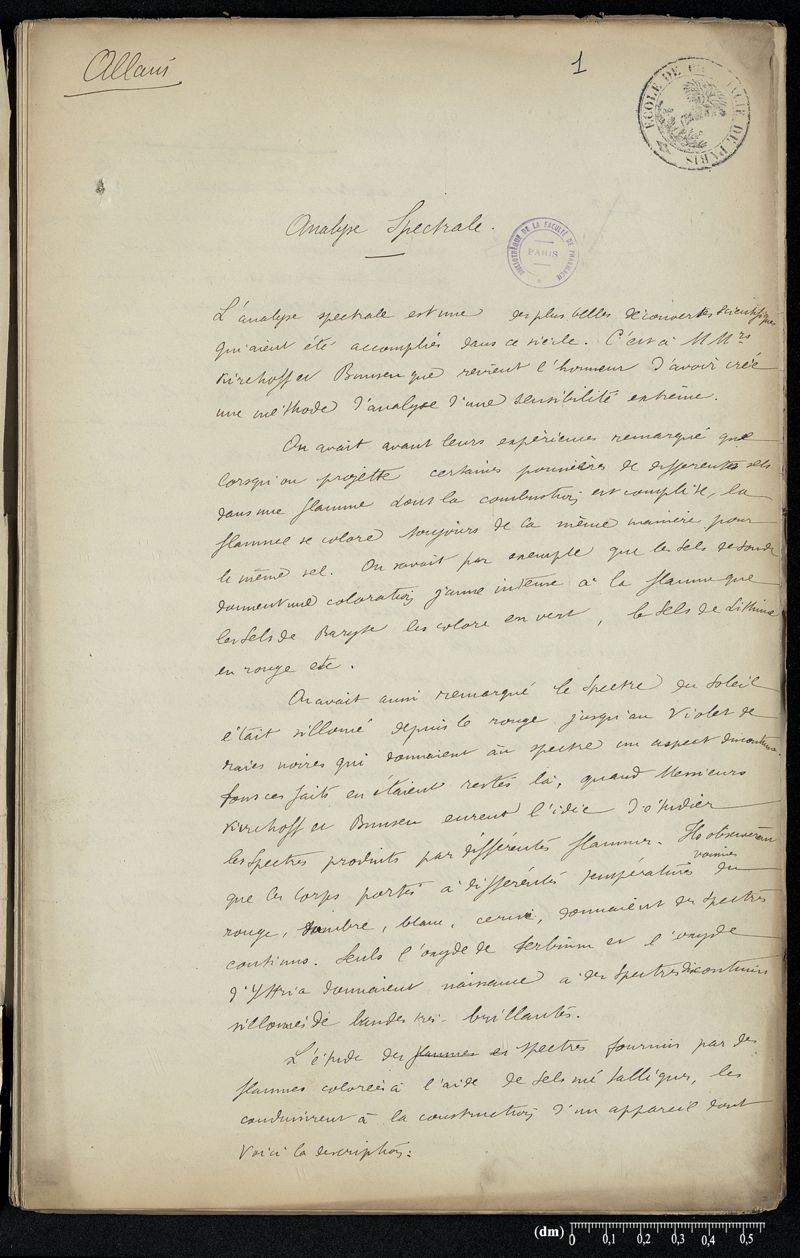 Allais
1
ECOLE DE PHARMACIE DE PARIS
Analyse Spectrale.
BIBLIOTHÈQUE DE LA FACULTÉ DE PHARMACIE
PARIS
L'analyse spectrale est une des plus belles découvertes scientifiques
qui aient été accomplies dans ce siècle. C'est à MMrs
Kirchoff et Bunsen que revient l'honneur d'avoir créé
une méthode d'analyse d'une sensibilité extrême.
On avait avant leurs expériences remarqué que
lorsqu'on projette certaines poussières de differentes sels
dans une flamme dont la combustion est complète, la
flamme se colore toujours de la même manière pour
le même sel. On savait par exemple que les sels de soude
donnent une coloration jaune intense à la flamme que
les sels de Baryte les colore en vert, le sels de Lithine
en rouge etc.
On avait aussi remarqué le spectre du soleil
était sillonné depuis le rouge jusqu'au violet de
raies noires qui donnaient au spectre un aspect discontinu.
Tous ces faits en étaient restés là, quand Messieurs
Kirchoff et Bunsen eurent l'idée d'étudier
les spectres produits par différentes flammes. Ils observèrent
que les corps portés à différentes températures du
rouge, sombre, blanc, cerise, donnaient des spectres
continus. Seuls l'oxyde de Terbium et l'oxyde
d'Yttria donnaient naissance à des spectres discontinus
sillonnés de bandes très brillantes.
L'étude des flammes et spectres fournis par des
flammes colorées à l'aide de sels métalliques, les
conduisirent à la construction d'un appareil dont
voici la description:
(dm) 0 0,1 0,2 0,3 0,4 0,5